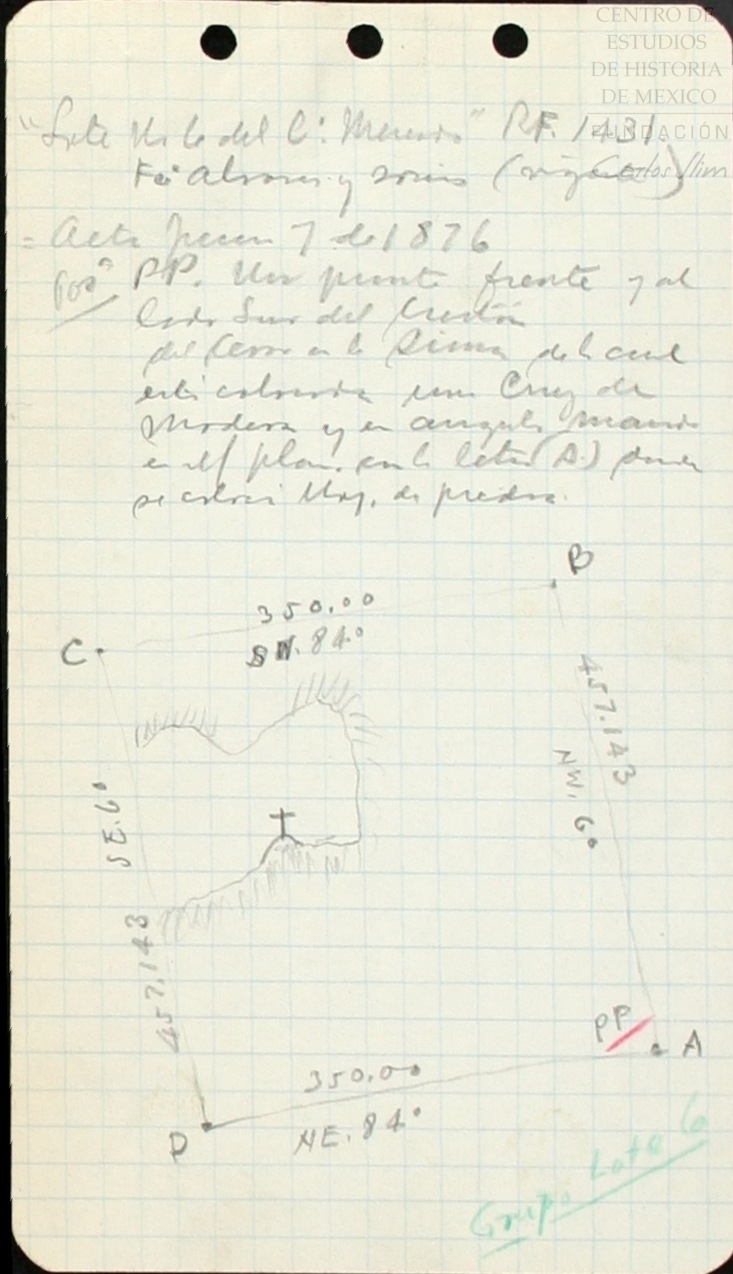 CENTRO DE
ESTUDIOS
DE HISTORIA
DE MEXICO
FUNDACIÓN
Carlos Slim
"Lote No 6 del C. " P.F. 1431
y socios
= Acta 7 de 1876
PP. Un punto frente y al
lado Sur del Crestón
del Cerro en la Sima de la cual
está colocada una Cruz de
Madera y en angulo
en el plano con la letra (A.) donde
se colocó de piedra.
B
350.00
SW. 84°
C
457.143
NW. 6°
SE. 6°
457.143
PP
A
350.00
NE. 84°
D
Grupo Lote 6